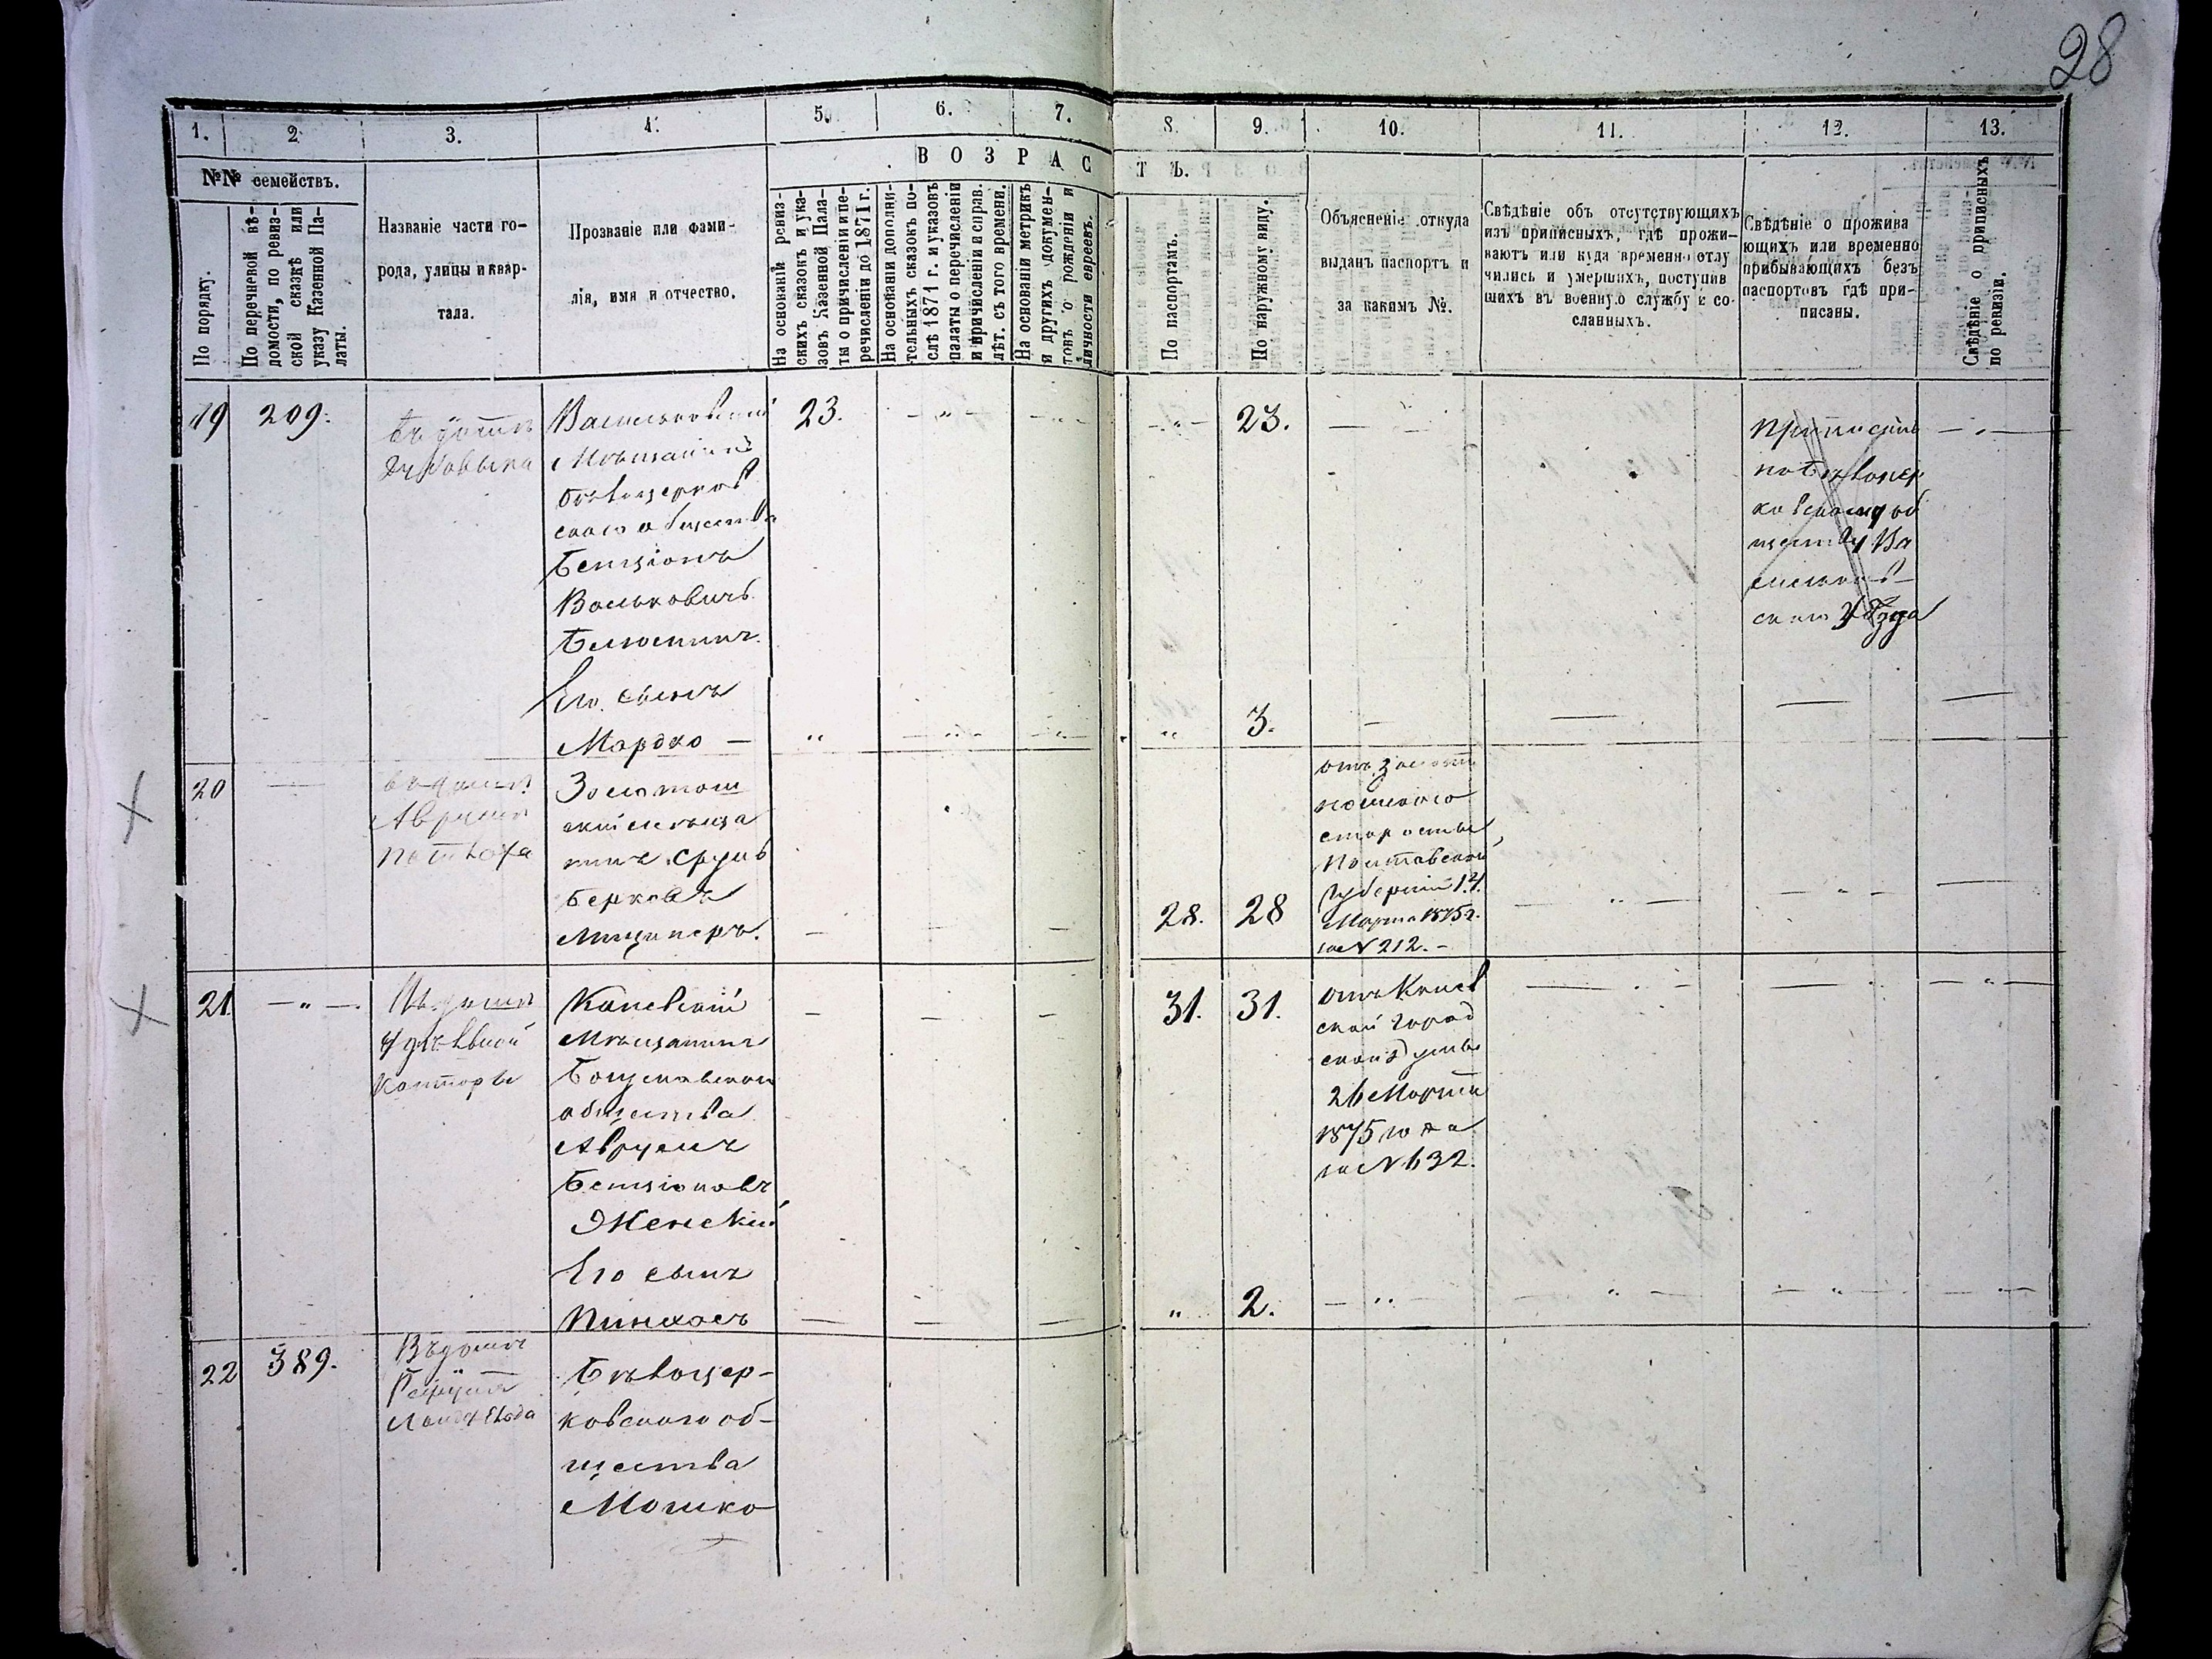 28
1. 2 3. 4. 5. 6. 7. 8. 9. 10. 11. 12. 13.
№№ семействъ.
ВОЗРАСТЪ.
По порядку.
По перечневой вѣ-
домости, по ревиз-
ской сказкѣ или
указу Казенной Па-
латы.
Названіе части го-
рода, улицы и квар-
тала.
Прозваніе или фами-
лія, имя и отчество.
На основаніи ревиз-
скихъ сказокъ и ука-
зовъ Казенной Пала-
ты о причисленіи и пе-
речисленіи до 1871 г.
На основаніи дополни-
тельныхъ сказокъ по-
слѣ 1871 г. и указовъ
палаты о перечисленіи
и причисленіи и справ.
лѣт. съ того времени.
На основаніи метрикъ
и другихъ докумен-
товъ о рожденіи и
личности евреевъ.
По паспортамъ.
По наружному виду.
Объясненіе откуда
выданъ паспортъ и
за какимъ №.
Свѣдѣніе объ отсутствующихъ
изъ приписныхъ, гдѣ прожи-
ваютъ или куда временно отлу
чились и умершихъ, поступив
шихъ въ военную службу и со-
сланныхъ.
Свѣдѣніе о прожива
ющихъ или временно
прибывающихъ безъ
паспортовъ гдѣ при-
писаны.
Свѣдѣніе о приписныхъ
по ревизіи.
19 209.
Васильковскій
Мѣщанинъ
бѣлоцерков
скаго общества
Бенціонъ
Вольковичъ
23. 23.
къ бѣлоцер
ковскому об
ществу Ва
сильков
скаго уѣзда
Его сынъ
Мордко —
3.
20
Золотош
скій мѣща
нинъ Сруль
Берковъ
28. 28
старосты
Полтавской
Губерніи 12
Марта 1875 г.
за № 212. –
21.
Удѣльной
Конторы
Каневскій
Мѣщанинъ
Богуславскаго
общества
Аврумъ
Бенціоновъ
Женскій
31. 31.
отъ Киев
ской город
ской думы
26 Марта
1875 года
за № 632.
Его сынъ
Пинхосъ
2.
22 389.
Въ домѣ
Бѣлоцер-
ковскаго об-
щества
Мошко